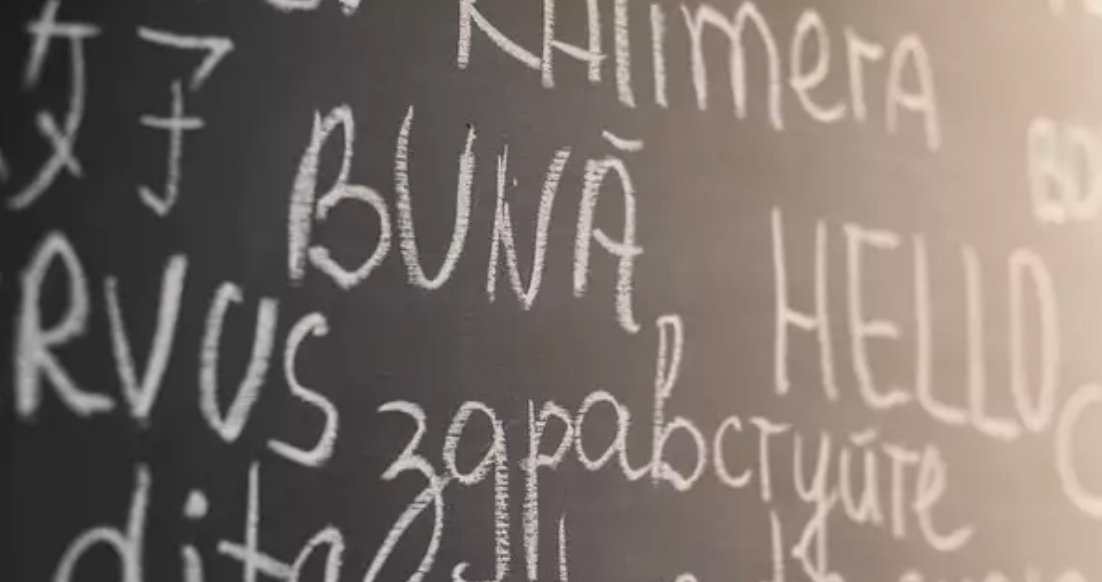 KAlimerA
好
BUNĂ
HELLO
RVUS
здравствуйте